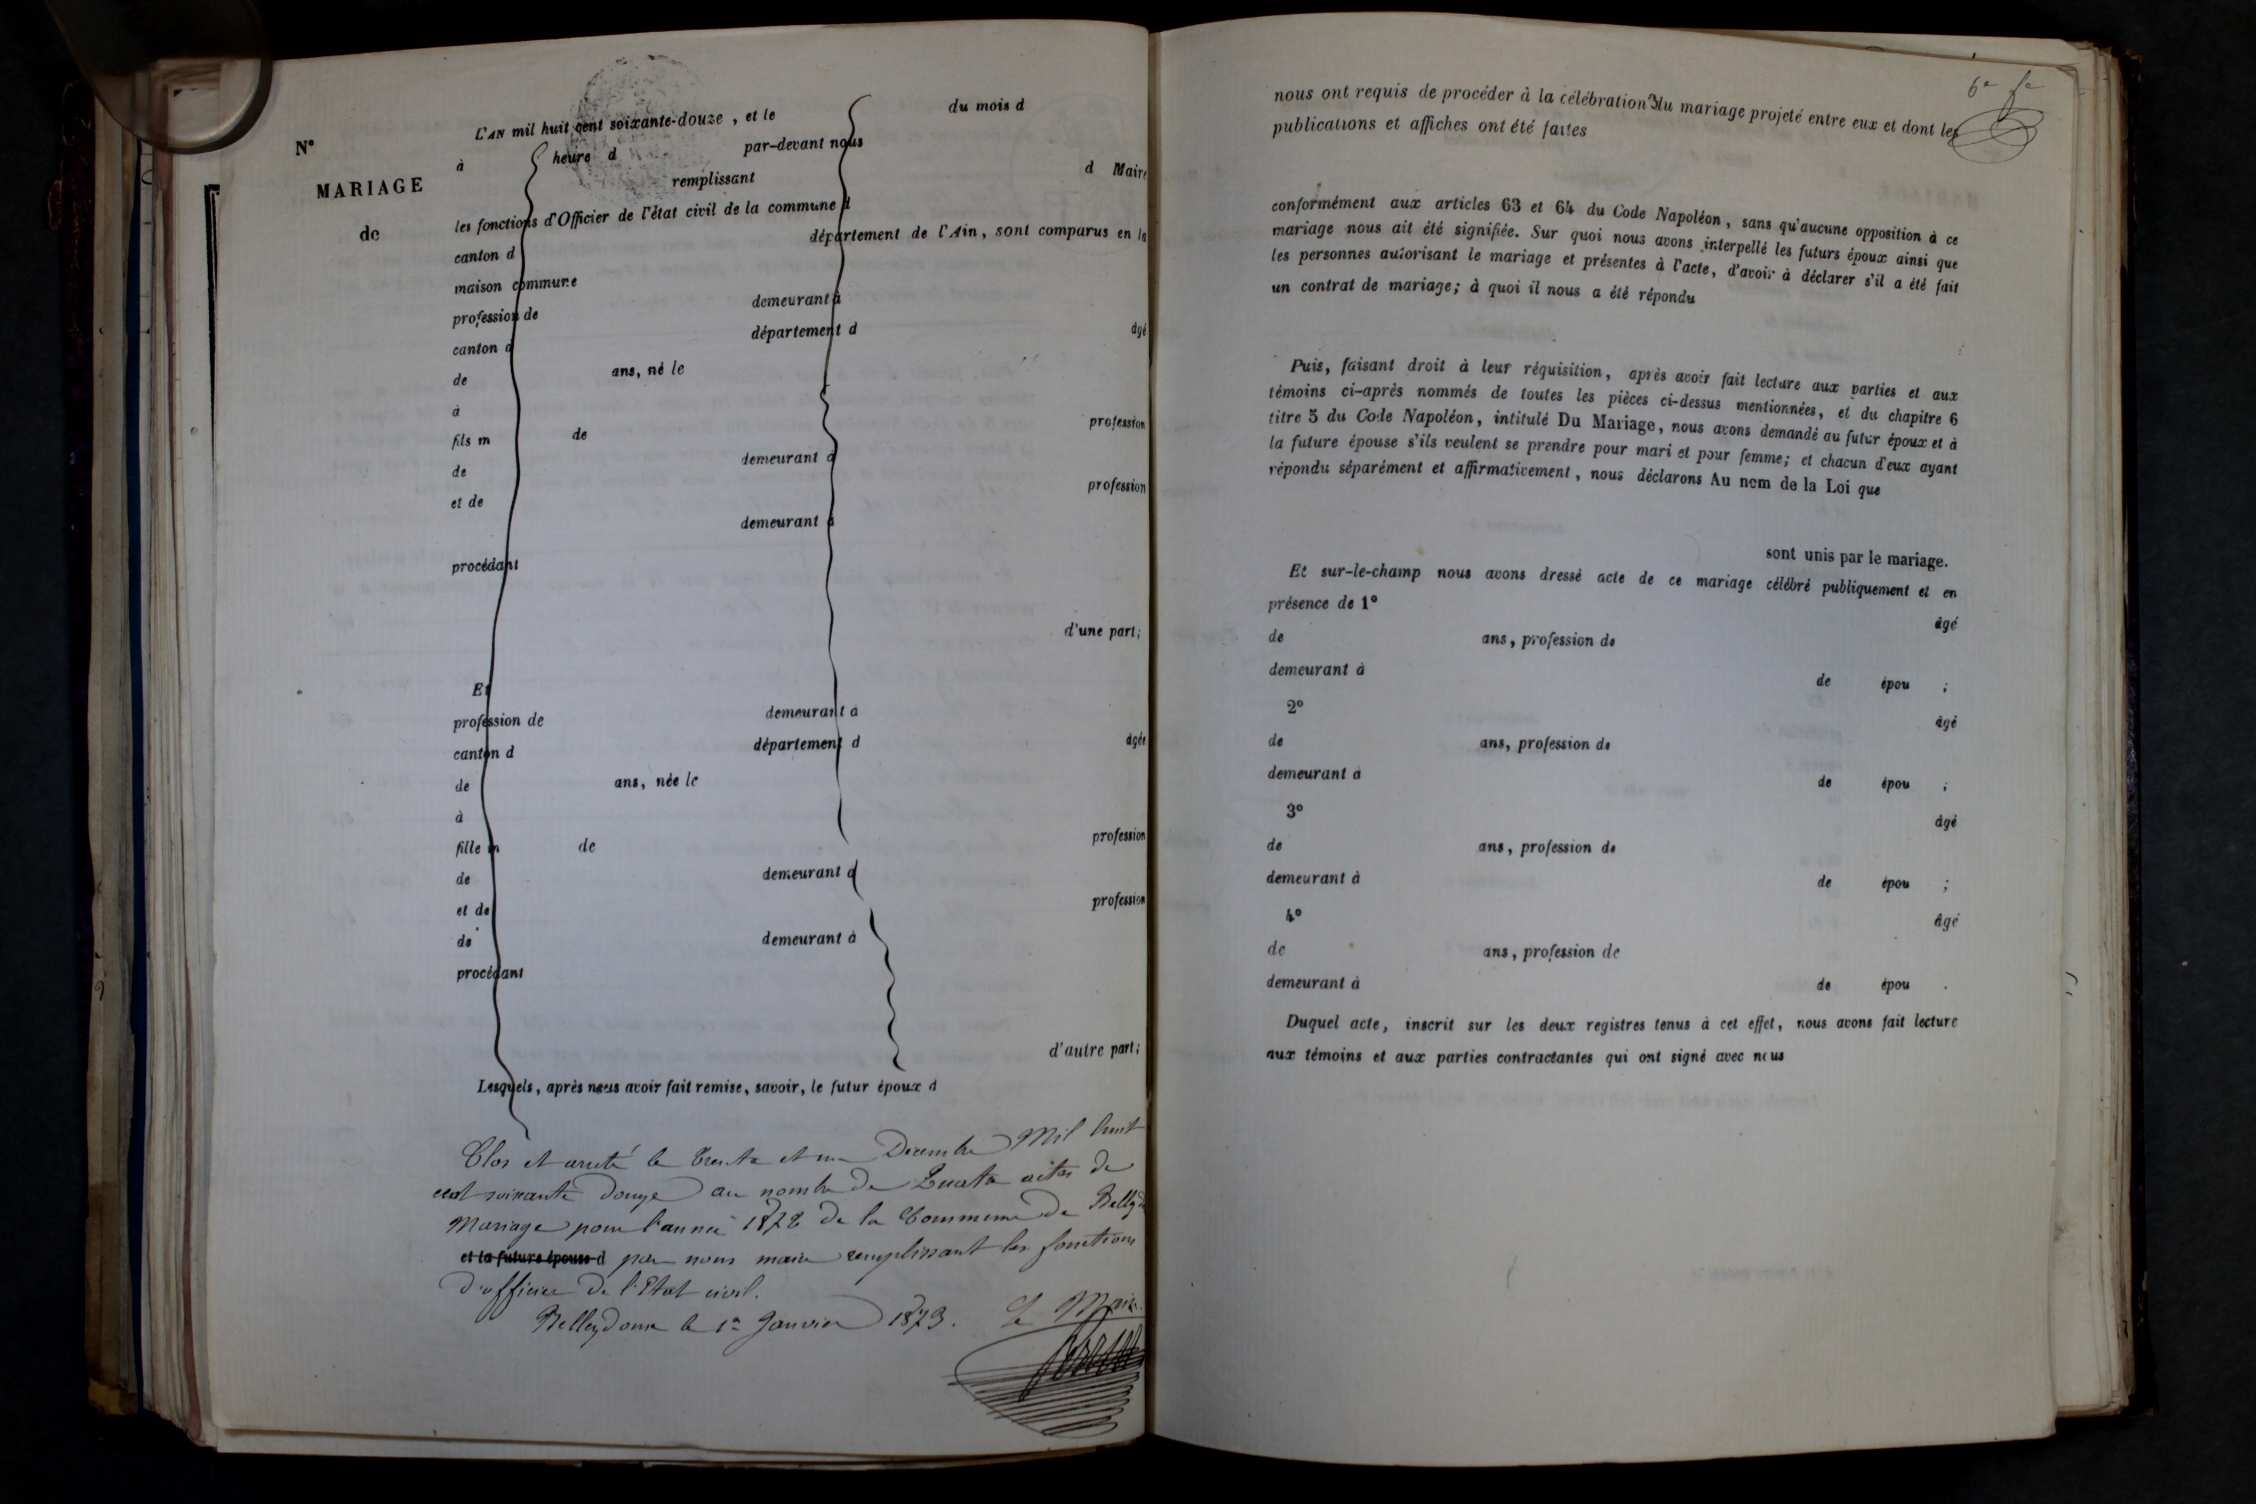 L'AN mil huit cent soixante-douze, et le du mois d
N° à heure d par-devant nous
MARIAGE remplissant d Maire
de les fonctions d'Officier de l'état civil de la commune d
canton d département de l'Ain, sont comparus en la
maison commune
profession de demeurant à
canton d département d âgé
de ans, né le
à
fils m de profession
de demeurant à
et de profession
demeurant à
procédant
d'une part;
Et
profession de demeurant à
canton d département d âgée
de ans, née le
à
fille m de profession
de demeurant à
et de profession
de demeurant à
procédant
d'autre part;
Lesquels, après nous avoir fait remise, savoir, le futur époux d
Clos et arrêté le trente et un Decembre Mil huit
cent soixante douze au nombre de Quatre actes de
Mariage pour l'année 1872 de la Commune de
et la future épouse d par nous maire remplissant les fonctions
d'officier de l'Etat civil.
Belleydoux le 1er Janvier 1873. Le Maire.
6e fe
nous ont requis de procéder à la célébration du mariage projeté entre eux et dont les
publications et affiches ont été faites
conformément aux articles 63 et 64 du Code Napoléon, sans qu'aucune opposition à ce
mariage nous ait été signifiée. Sur quoi nous avons interpellé les futurs époux ainsi que
les personnes autorisant le mariage et présentes à l'acte, d'avoir à déclarer s'il a été fait
un contrat de mariage; à quoi il nous a été répondu
Puis, faisant droit à leur réquisition, après avoir fait lecture aux parties et aux
témoins ci-après nommés de toutes les pièces ci-dessus mentionnées, et du chapitre 6
titre 5 du Code Napoléon, intitulé Du Mariage, nous avons demandé au futur époux et à
la future épouse s'ils veulent se prendre pour mari et pour femme; et chacun d'eux ayant
répondu séparément et affirmativement, nous déclarons Au nom de la Loi que
sont unis par le mariage.
Et sur-le-champ nous avons dressé acte de ce mariage célébré publiquement et en
présence de 1° âgé
de ans, profession de
demeurant à de épou ;
2° âgé
de ans, profession de
demeurant à de épou ;
3° âgé
de ans, profession de
demeurant à de épou ;
4° âgé
de ans, profession de
demeurant à de épou .
Duquel acte, inscrit sur les deux registres tenus à cet effet, nous avons fait lecture
aux témoins et aux parties contractantes qui ont signé avec nous